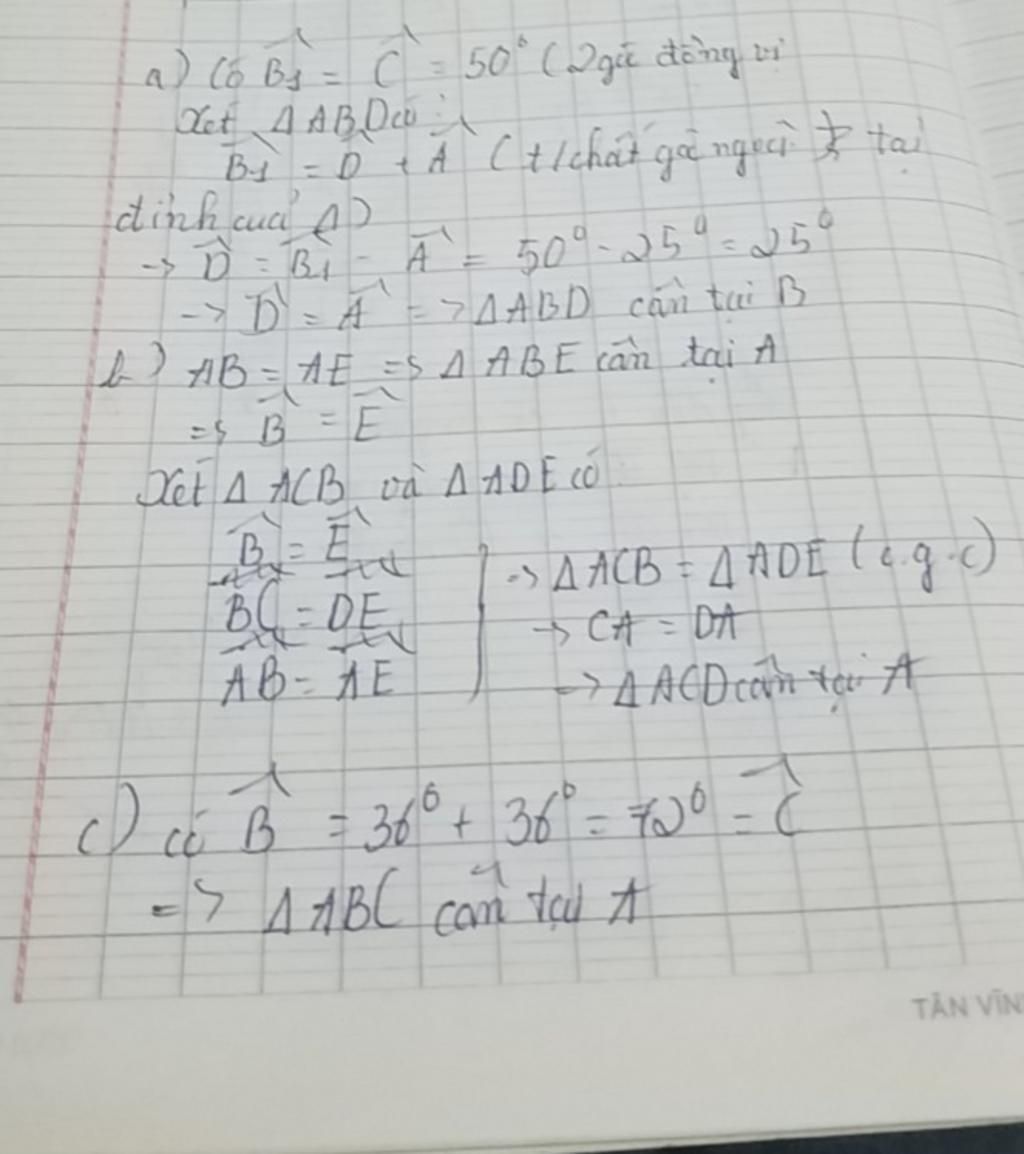 a) Có B̂1 = Ĉ = 50° (2 góc đồng vị
Xét ΔABD có:
B̂1 = D̂ + Â (t/chất góc ngoài tại
đỉnh của Δ)
→ D̂ = B̂1 - Â = 50° - 25° = 25°
→ D̂ = Â => ΔABD cân tại B
b) AB = AE => Δ ABE cân tại A
=> B̂ = Ê
Xét Δ ACB và Δ ADE có
B̂ = Ê
BC = DE
AB = AE
→ ΔACB = ΔADE (c.g.c)
→ CA = DA
→ ΔACD cân tại A
c) có B̂ = 36° + 36° = 72° = Ĉ
=> ΔABC cân tại A
TÂN VĨN